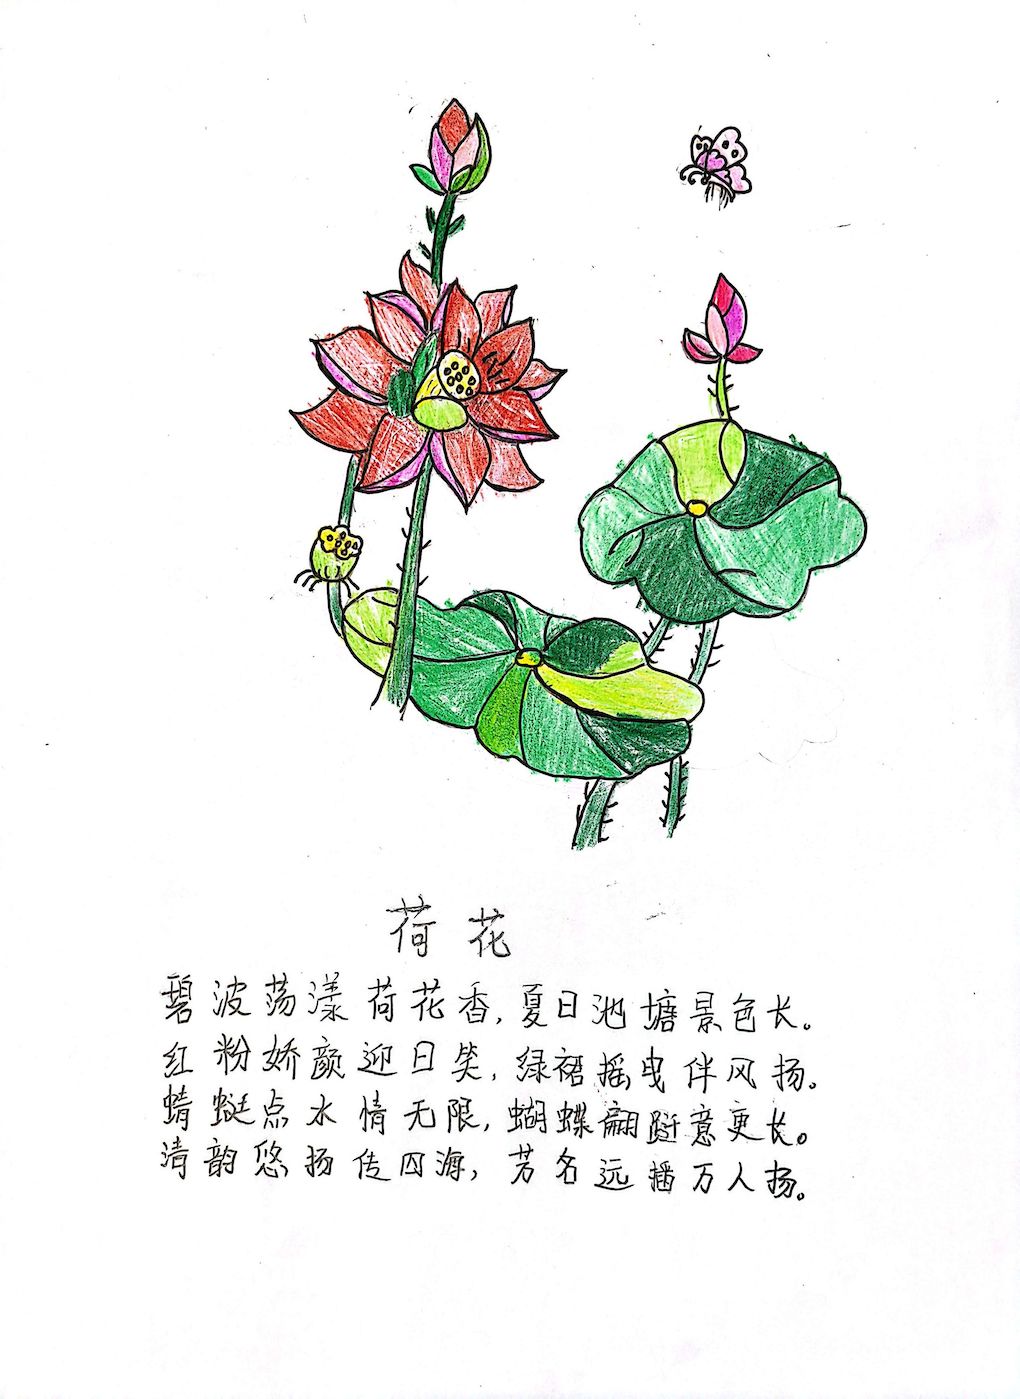 荷花
碧波荡漾荷花香,夏日池塘景色长。
红粉娇颜迎日笑,绿裙摇曳伴风扬。
蜻蜓点水情无限,蝴蝶翩跹意更长。
清韵悠扬传四海,芳名远播万人扬。